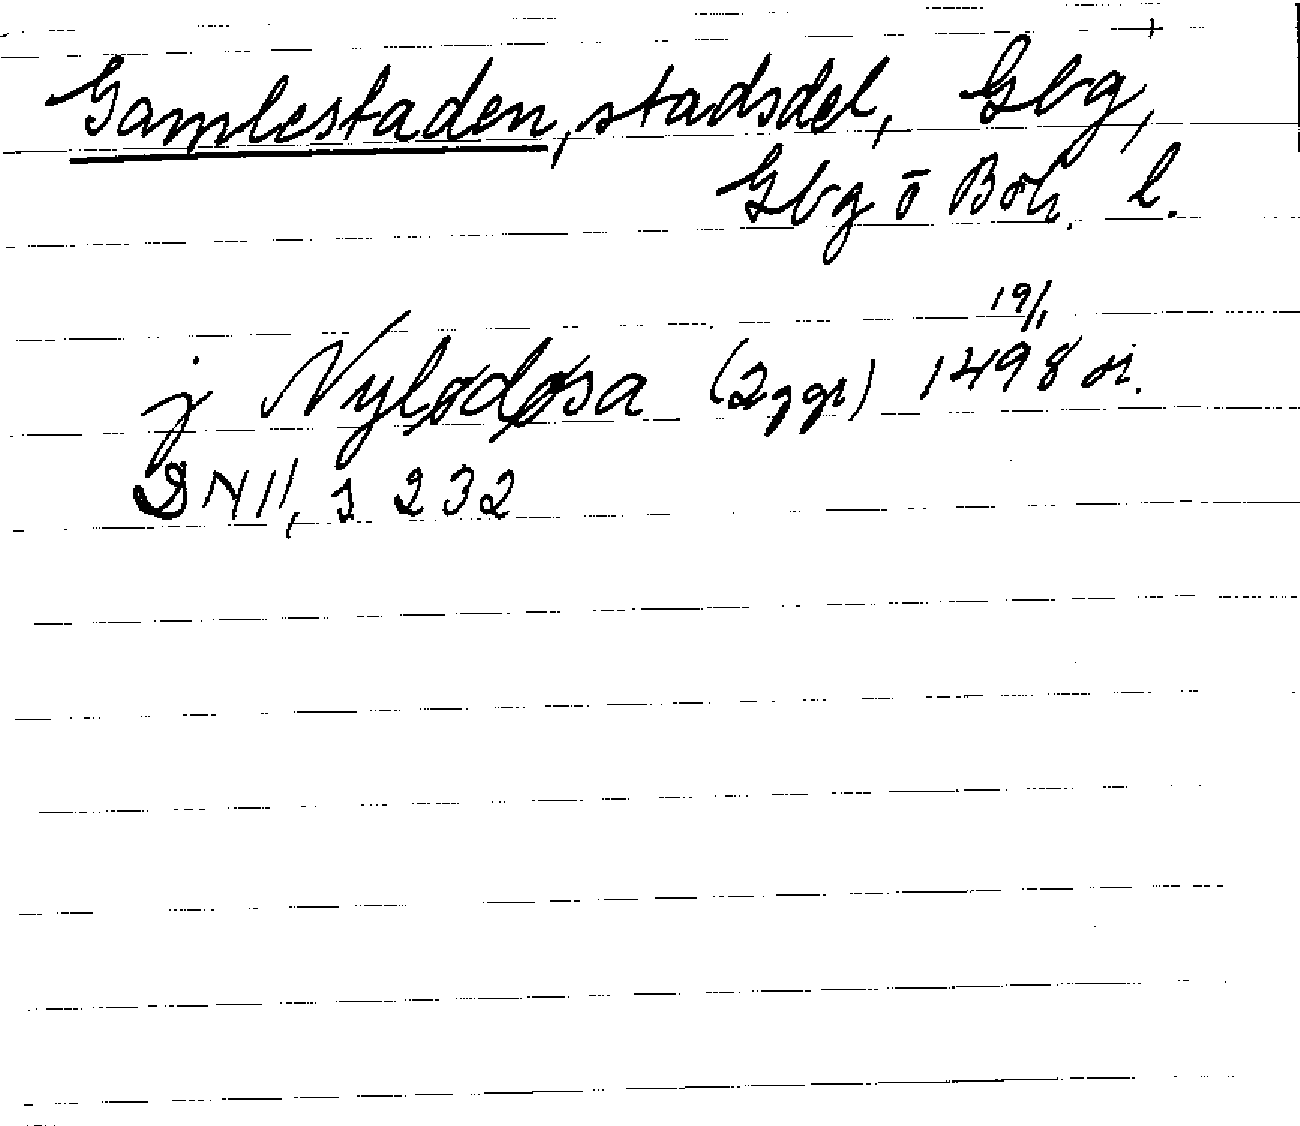 Gamlestaden, stadsdel, Gbg,
Gbg o Boh. l.
j Nylødøsa (2 ggr) 19/1 1498 or.
DN II, s 232